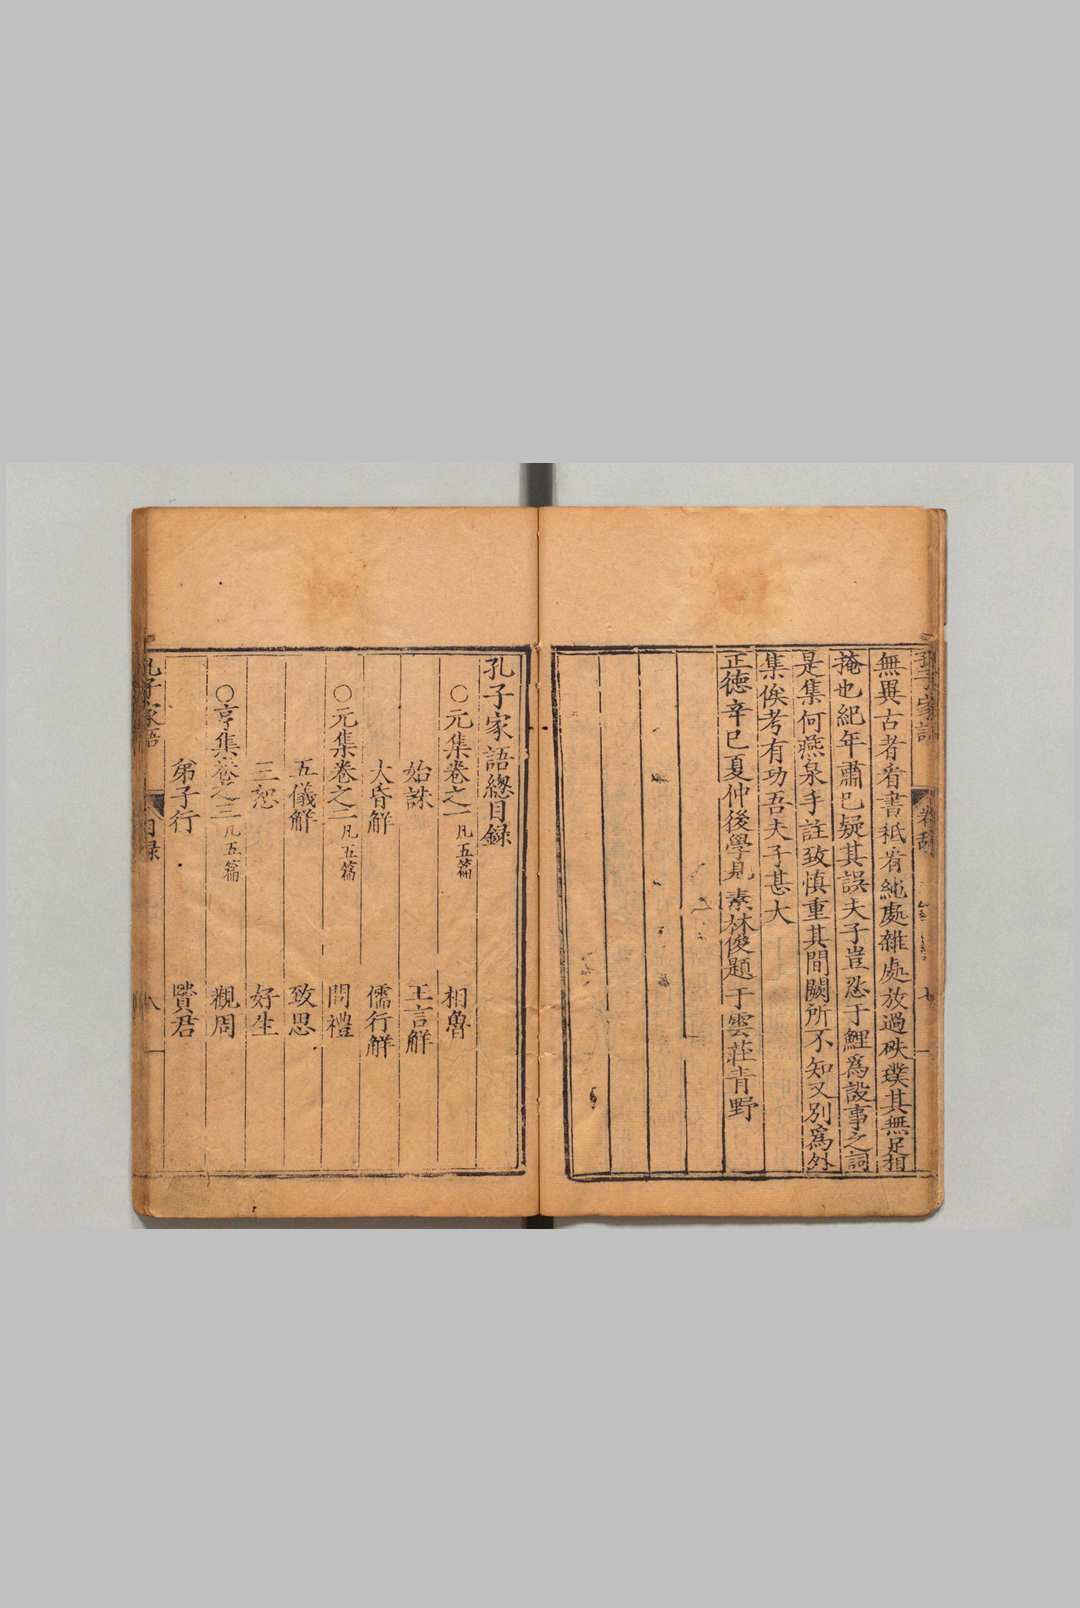 無異古者肴書祇肴純處雜處放過砆璞其無足相
掩也紀年肅已疑其誤夫子豈忍于鯉爲設事之詞
是集何燕泉手註致慎重其間闕所不知又別爲外
集俟考有功吾夫子甚大
正德辛巳夏仲後學見素林俊題于雲莊青野
孔子家語總目録
○元集卷之一凡五篇
相魯
始誅 王言解
大昏解 儒行解
○元集卷之二凡五篇
問禮
五儀解 致思
三恕 好生
○亨集卷之三凡五篇
觀周
弟子行 賢君
孔子家語 目録 八